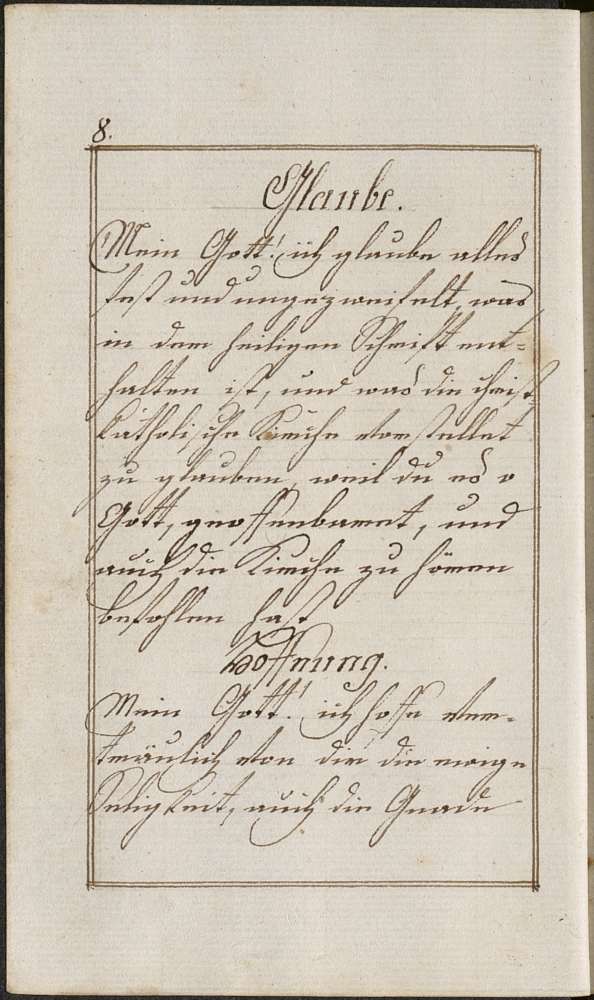 8.
Glaube.
Mein Gott! ich glaube alles
fest und ungezweifelt, was
in dem heiligen Schrift ent=
halten ist, und was die christ=
katholische Kirche vorstellet
zu glauben, weil du es o
Gott, geoffenbaret, und
auch die Kirche zu hören
befohlen hast
Hoffnung.
Mein Gott! ich hoffe ver=
träulich von dir die ewige
Seligkeit, auch die Gnade